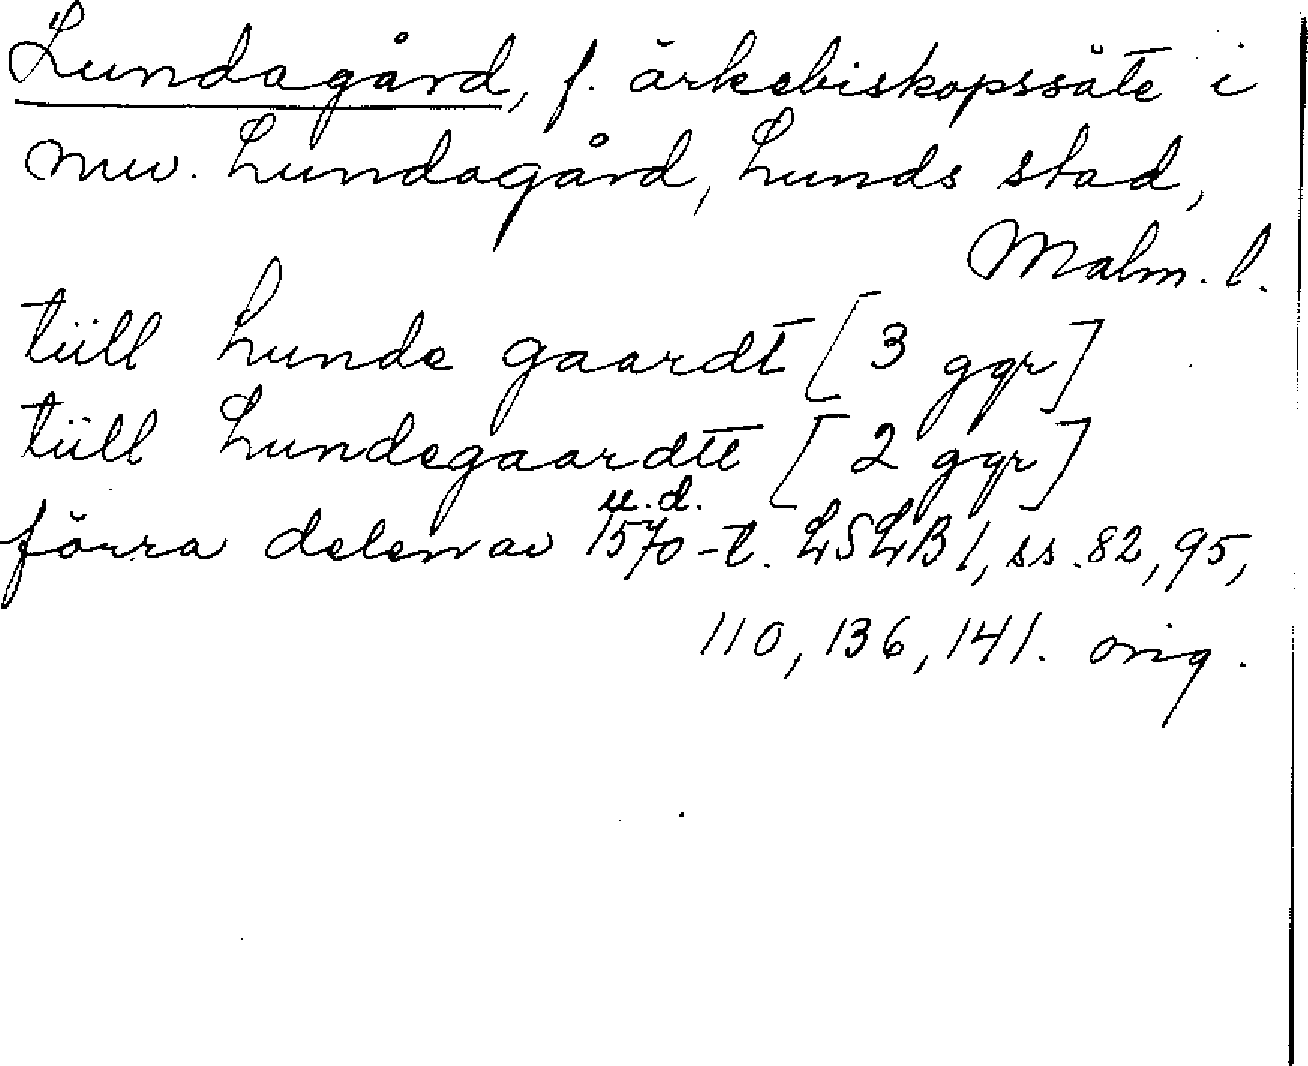 Lundagård, f. ärkebiskopssäte i
nuv. Lundagård, Lunds stad,
Malm. l.
tüll Lunde gaardt [3 ggr]
tüll Lundegaardtt [2 ggr]
u.d.
förra delen av 1570-t. LSLB 1, ss. 82, 95,
110, 136, 141. orig.